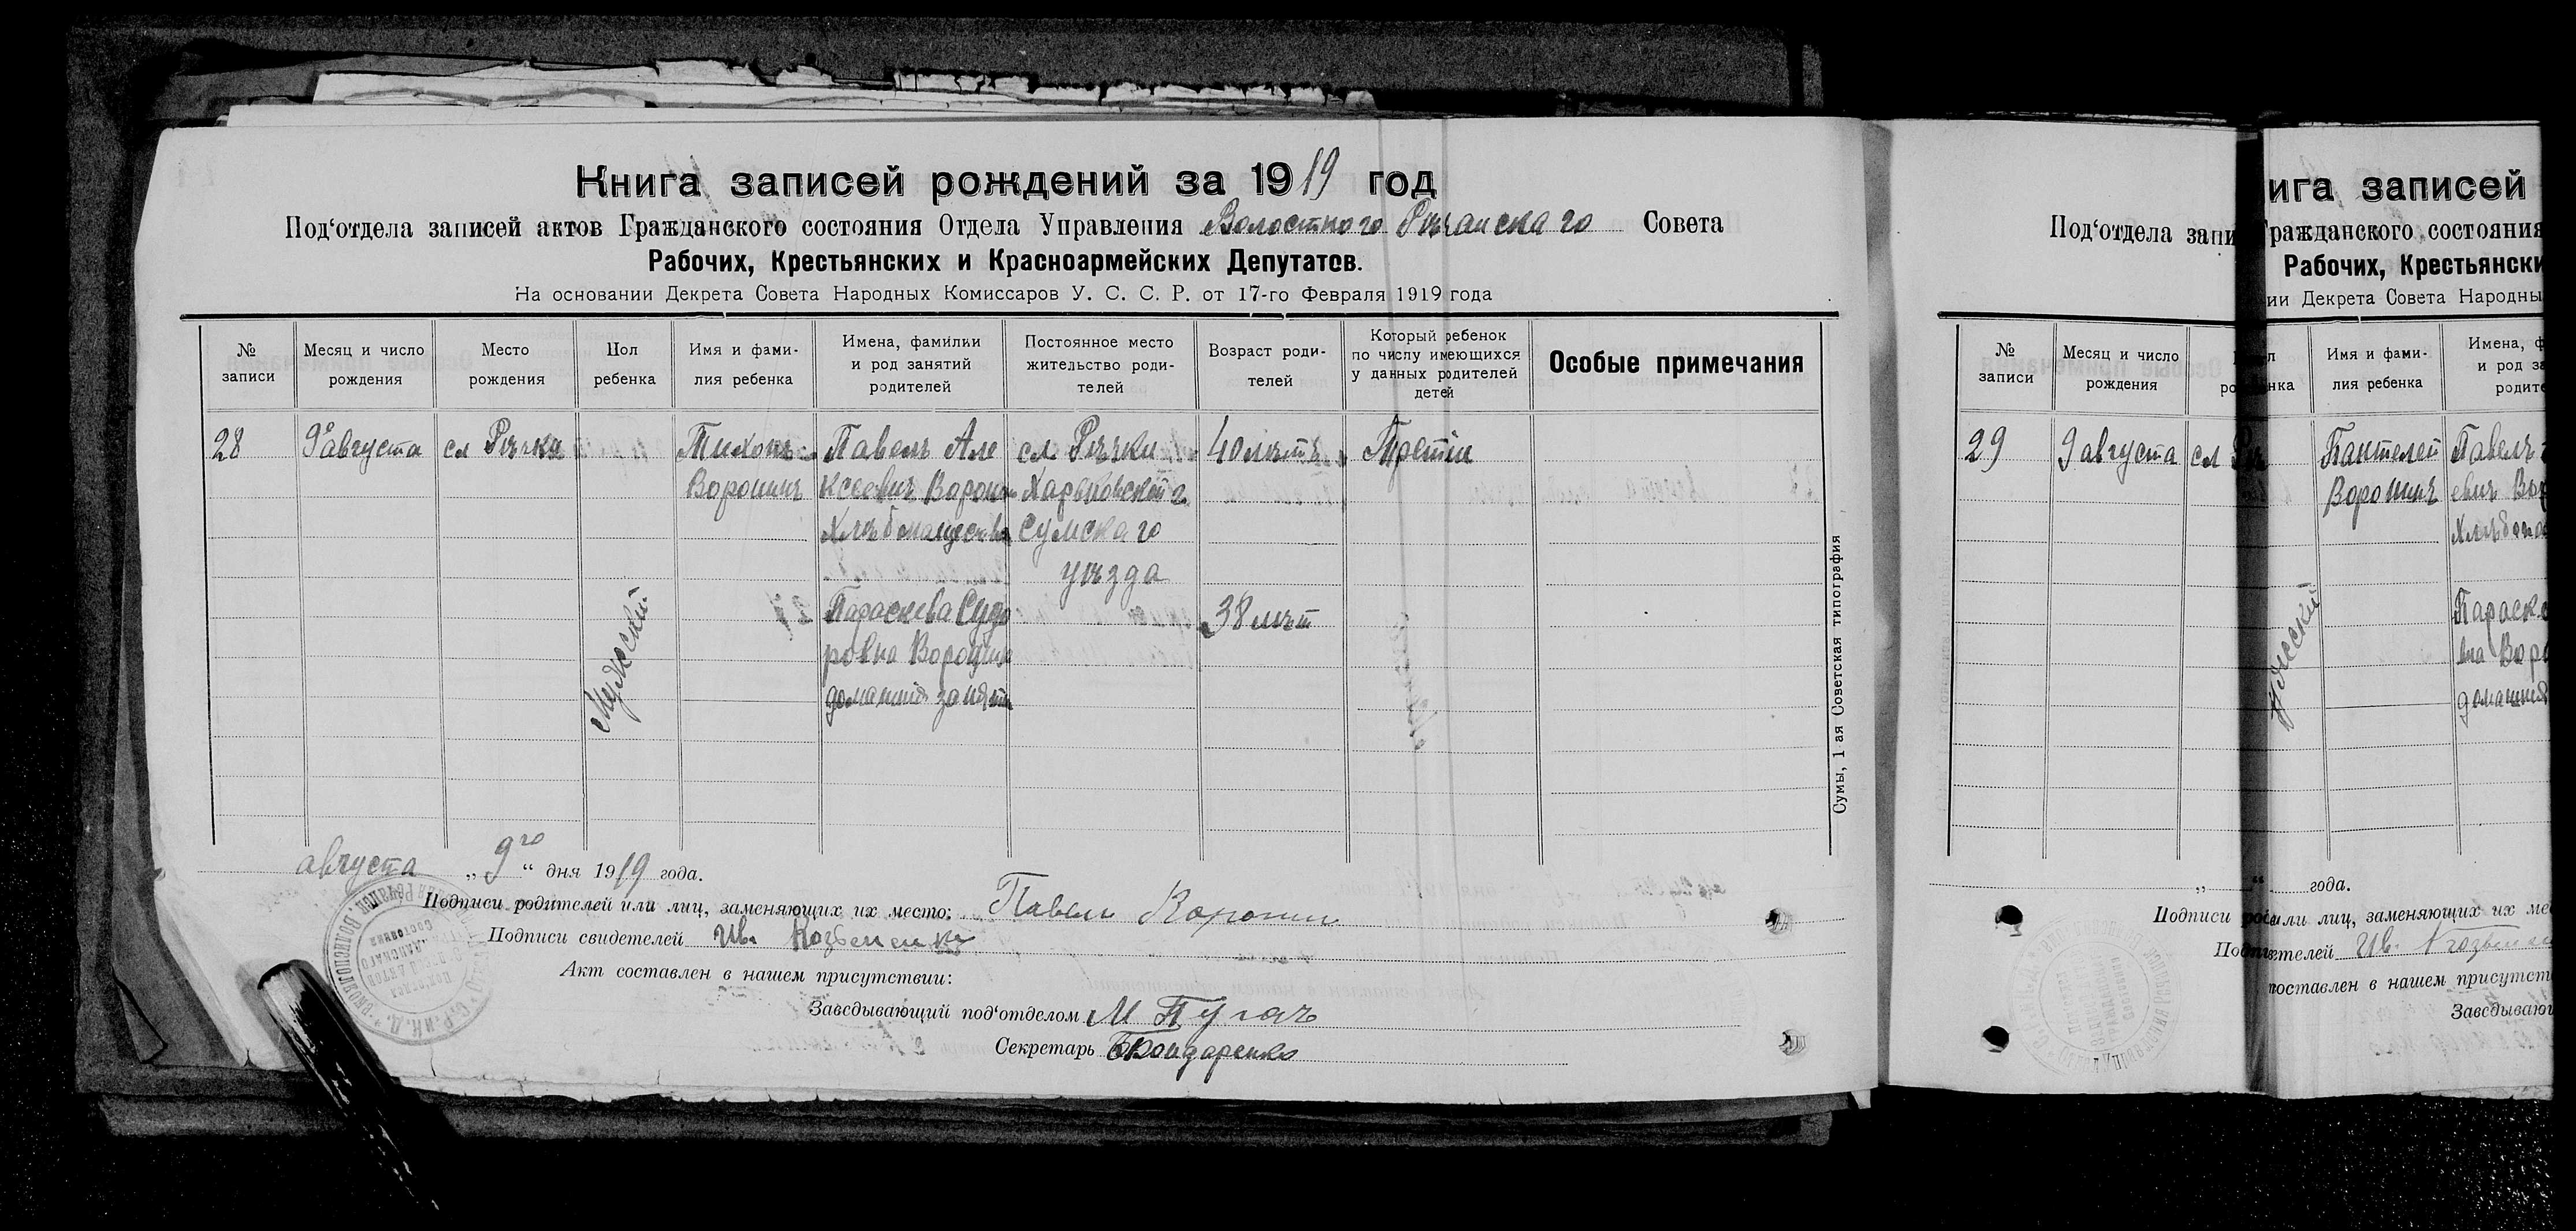 Книга записей рождений за 1919 год
Под‘отдела записей актов Гражданского состояния Отдела Управления Волостного Рѣчанскаго Совета
Рабочих, Крестьянских и Красноармейских Депутатов.
На основании Декрета Совета Народных Комиссаров У. С. С. Р. от 17-го Февраля 1919 года
№ записи
Месяц и число рождения
Место рождения
Пол ребенка
Имя и фами-
лия ребенка
Имена, фамилии
и род занятий
родителей
Постоянное место
жительство роди-
телей
Возраст роди-
телей
Который ребенок
по числу имеющихся
у данных родителей
детей
Особые примечания
28
9го августа
сл Рѣчки
Мужеский
Тихонъ
Воронинъ
Павелъ Але
ксеевич Воронин
Хлѣбопашество
Параскева Сидо
ровна Воронина
домашнія занятия
сл Рѣчки
Харьковской г.
Сумскаго
уѣзда
40 лѣтъ
38 лѣт
Третій
Сумы, 1 ая Советская типография
августа „9го“ дня 1919 года.
Подписи родителей или лиц, заменяющих их место: Павел Воронин
Подписи свидетелей Ив.
Акт составлен в нашем присутствии:
Заведывающий под‘отделом М Пугачъ
Секретарь Бондаренко
ига записей
Под‘отдела запи
Гражданского состояния
Рабочих, Крестьянски
ии Декрета Совета Народны
№ записи
Месяц и число рождения
Имя и фами-
лия ребенка
Имена, ф
и род за
родите
29
9 августа
сл Рѣ
Пантелей
Воронинъ
Павелъ
евич Вор
Хлѣбопа
Параск
вна Воро
домашния
года.
Подписи
или лиц, заменяющих их ме
Ив.
оставлен в нашем присутст
Заведывающ